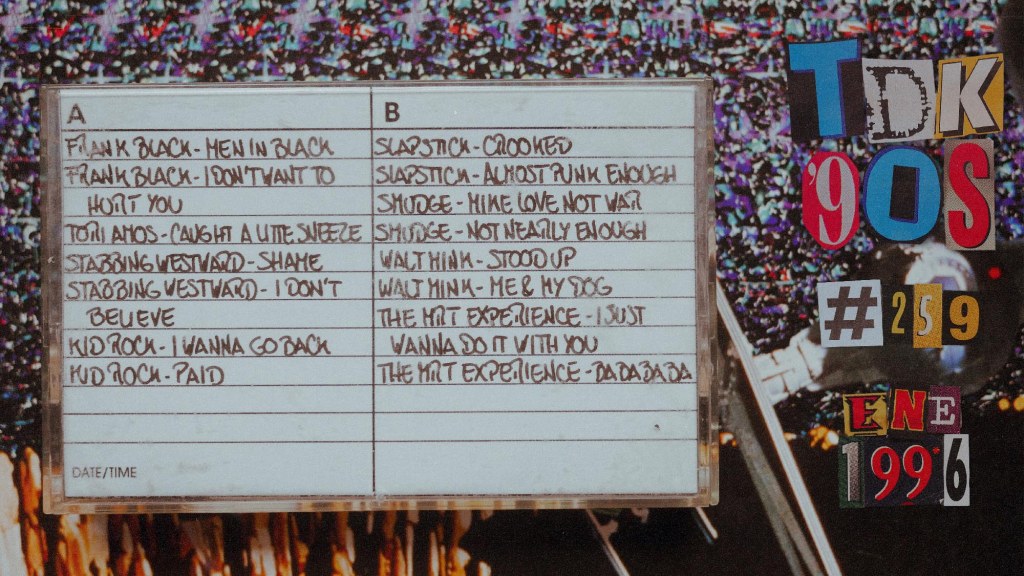 A
FRANK BLACK - MEN IN BLACK
FRANK BLACK - I DON'T WANT TO
HURT YOU
TORI AMOS - CAUGHT A LITE SNEEZE
STABBING WESTWARD - SHAME
STABBING WESTWARD - I DON'T
BELIEVE
KID ROCK - I WANNA GO BACK
KID ROCK - PAID
DATE/TIME
B
SLAPSTICK - CROOKED
SLAPSTICK - ALMOST PUNK ENOUGH
SMUDGE - MIKE LOVE NOT WAR
SMUDGE - NOT NEARLY ENOUGH
WALT MINK - STOOD UP
WALT MINK - ME & MY DOG
THE MRT EXPERIENCE - I JUST
WANNA DO IT WITH YOU
THE MRT EXPERIENCE - BA BA BA BA
TDK
'90S
#259
ENE
1996